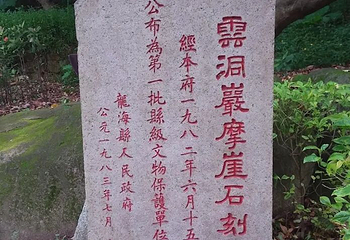 雲洞巖摩崖石刻
經本府一九八二年六月十五
公布為第一批縣級文物保護單位
龍海縣人民政府
公元一九八三年七月